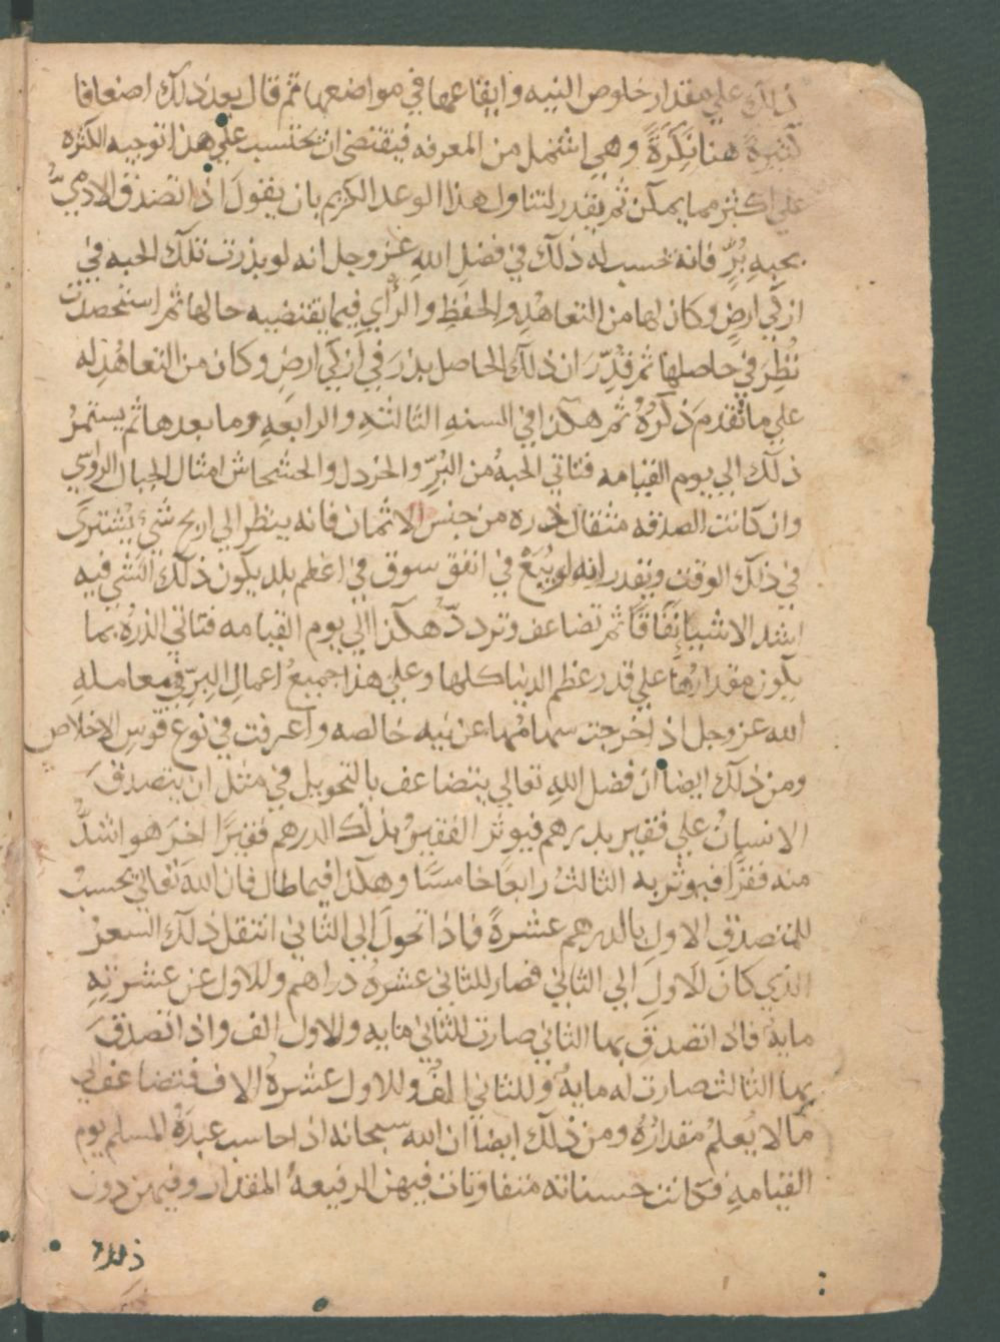 ذلك علي مقدار خلوص النيه وايقاعها في مواضعها ثم قال بعد ذلك اضعافا
كثيرة هنا نَكِرَةً وهي اشمل من المعرفه فيقتضى ان تحتسب علي هذا توجيه الكثره
علي اكثر مما يمكن ثم نقدر لتناول هذا الوعد الكريم بان يقول اذا تصدق الادميّ
بحبهِ بُرٍّ فانه تحسب له ذلك في فضلِ اللهِ عز وجل انه لو بذرت تلك الحبه في
ازكي ارضٍ وكان لها من التعاهُدِ والحفظِ والرَّأي فيما يقتضيه حالها ثم استحصدت
نُظِرَ في حاصلها ثم قُدِّرَ ان ذلك الحاصل بذر في ازكي ارضٍ وكان من التعاهُد له
علي ما تقدم ذكرُهُ ثم هكذا في السنهِ الثالثهِ والرابعهِ وما بعدها ثم يستمرُ
ذلك الي يوم القيامه فتاتي الحبهُ من البُرِّ والخردل والخشخاش امثال الجبال الرواسي
وان كانت الصدقه مثقال ذره من جنس الاثمان فانه ينظر الي اربح شيء يُشترَى
في ذلك الوقت ويقدر انه لو بِيْعَ في انفق سوق في اعظم بلد يكون ذلك الشي فيه
اشد الاشيا نَفَاقًا ثم تضاعف وترددّ هكذا الي يوم القيامه فتاتي الذرهُ بما
يكون مقدارُها علي قدر عظم الدنيا كلها وعلي هذا جميعُ اعمالِ البِرِّ في معاملهِ
الله عز وجل اذا خرجت سهامُها عن نيه خالصه و في نوع قوسِ الاخلاص
ومن ذلك ايضا ان فضل اللهِ تعالي يتضاعف بالتحويل في مثل ان يتصدقَ
الانسانُ علي فقير بدرهم فيوثر الفقيرُ بذلك الدرهم فقيرًا اخرَ هو اشدُّ
منه فقرًا فيوثر به الثالثُ رابعًا خامسًا وهكذا فيما طال فان اللهَ تعالي يحسبُ
للمتصدقِ الاولِ بالدرهم عشرةً فاذا تحولَ الي الثاني انتقل ذلك السعرُ
الذي كان للاولِ الي الثاني فصار للثاني عشرهُ دراهم وللاول عن عشرتهِ
مايهٌ فاذا تصدقَ بها الثاني صارت للثاني مايه وللاول الف واذا تصدقَ
بها الثالث صارت له مايهٌ وللثاني الفٌ وللاول عشرهُ الاف فتضاعف الي
ما لا يُعلمُ مقدارُهُ ومن ذلك ايضا ان الله سبحانه اذا حاسب عبدَهُ المسلم يوم
القيامهِ فكانت حسناته متفاوتات فيهن الرفيعهُ المقدار وفيهن دون
ذلك